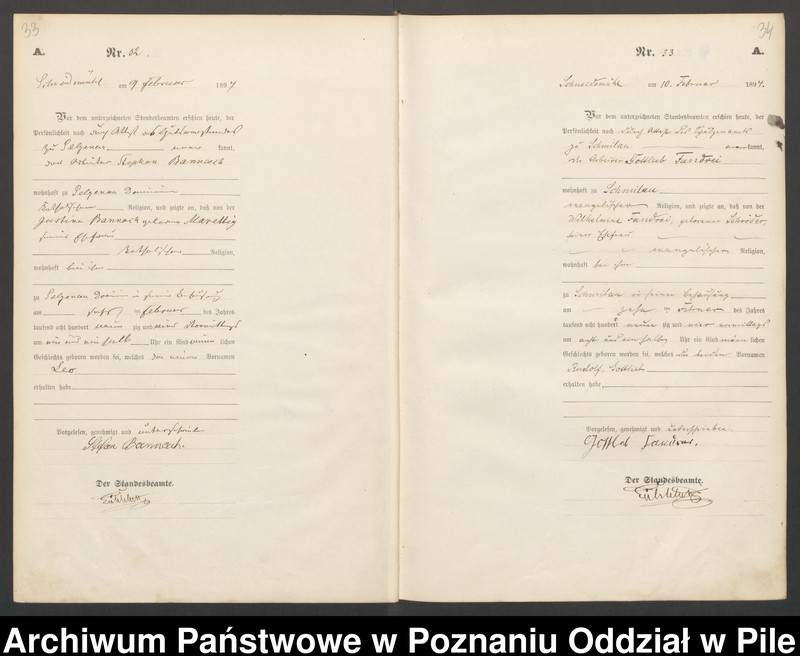 33
A.
Nr. 32.
Schneidemühl am 9 Februar 1894
Vor dem unterzeichneten Standesbeamten erschien heute, der
Persönlichkeit nach durch Attest des Gutsvorstandes
zu Selgenau kannt,
der Arbeiter Stephan Bannach
wohnhaft zu Selgenau Dominium
katholischer Religion, und zeigte an, daß von der
Justine Bannach geborene
seiner Ehefrau
katholischer Religion,
wohnhaft bei ihm
zu Selgenau Dominium in seiner Behausung
am Februar des Jahres
tausend acht hundert neunzig und vier Vormittags
um Uhr ein Kind männlichen
Geschlechts geboren worden sei, welches den Vornamen
Leo
erhalten habe
Vorgelesen, genehmigt und unterschrieben
Bannach.
Der Standesbeamte.
34
Nr. 33
A.
Schneidemühl am 10. Februar 1894.
Vor dem unterzeichneten Standesbeamten erschien heute, der
Persönlichkeit nach durch Attest des Schulzenamts
zu Schmilau kannt,
der Arbeiter Gottlieb Fandrei
wohnhaft zu Schmilau
evangelischer Religion, und zeigte an, daß von der
Wilhelmine Fandrei, geborenen Schröder,
seiner Ehefrau
evangelischer Religion,
wohnhaft bei ihm
zu Schmilau in seiner Behausung
am zehn Februar des Jahres
tausend acht hundert neunzig und vier vormittags
um acht und einhalb Uhr ein Kind männlichen
Geschlechts geboren worden sei, welches die beiden Vornamen
Rudolf Gottlieb
erhalten habe
Vorgelesen, genehmigt und unterschrieben.
Fandrei.
Der Standesbeamte.
Archiwum Państwowe w Poznaniu Oddział w Pile